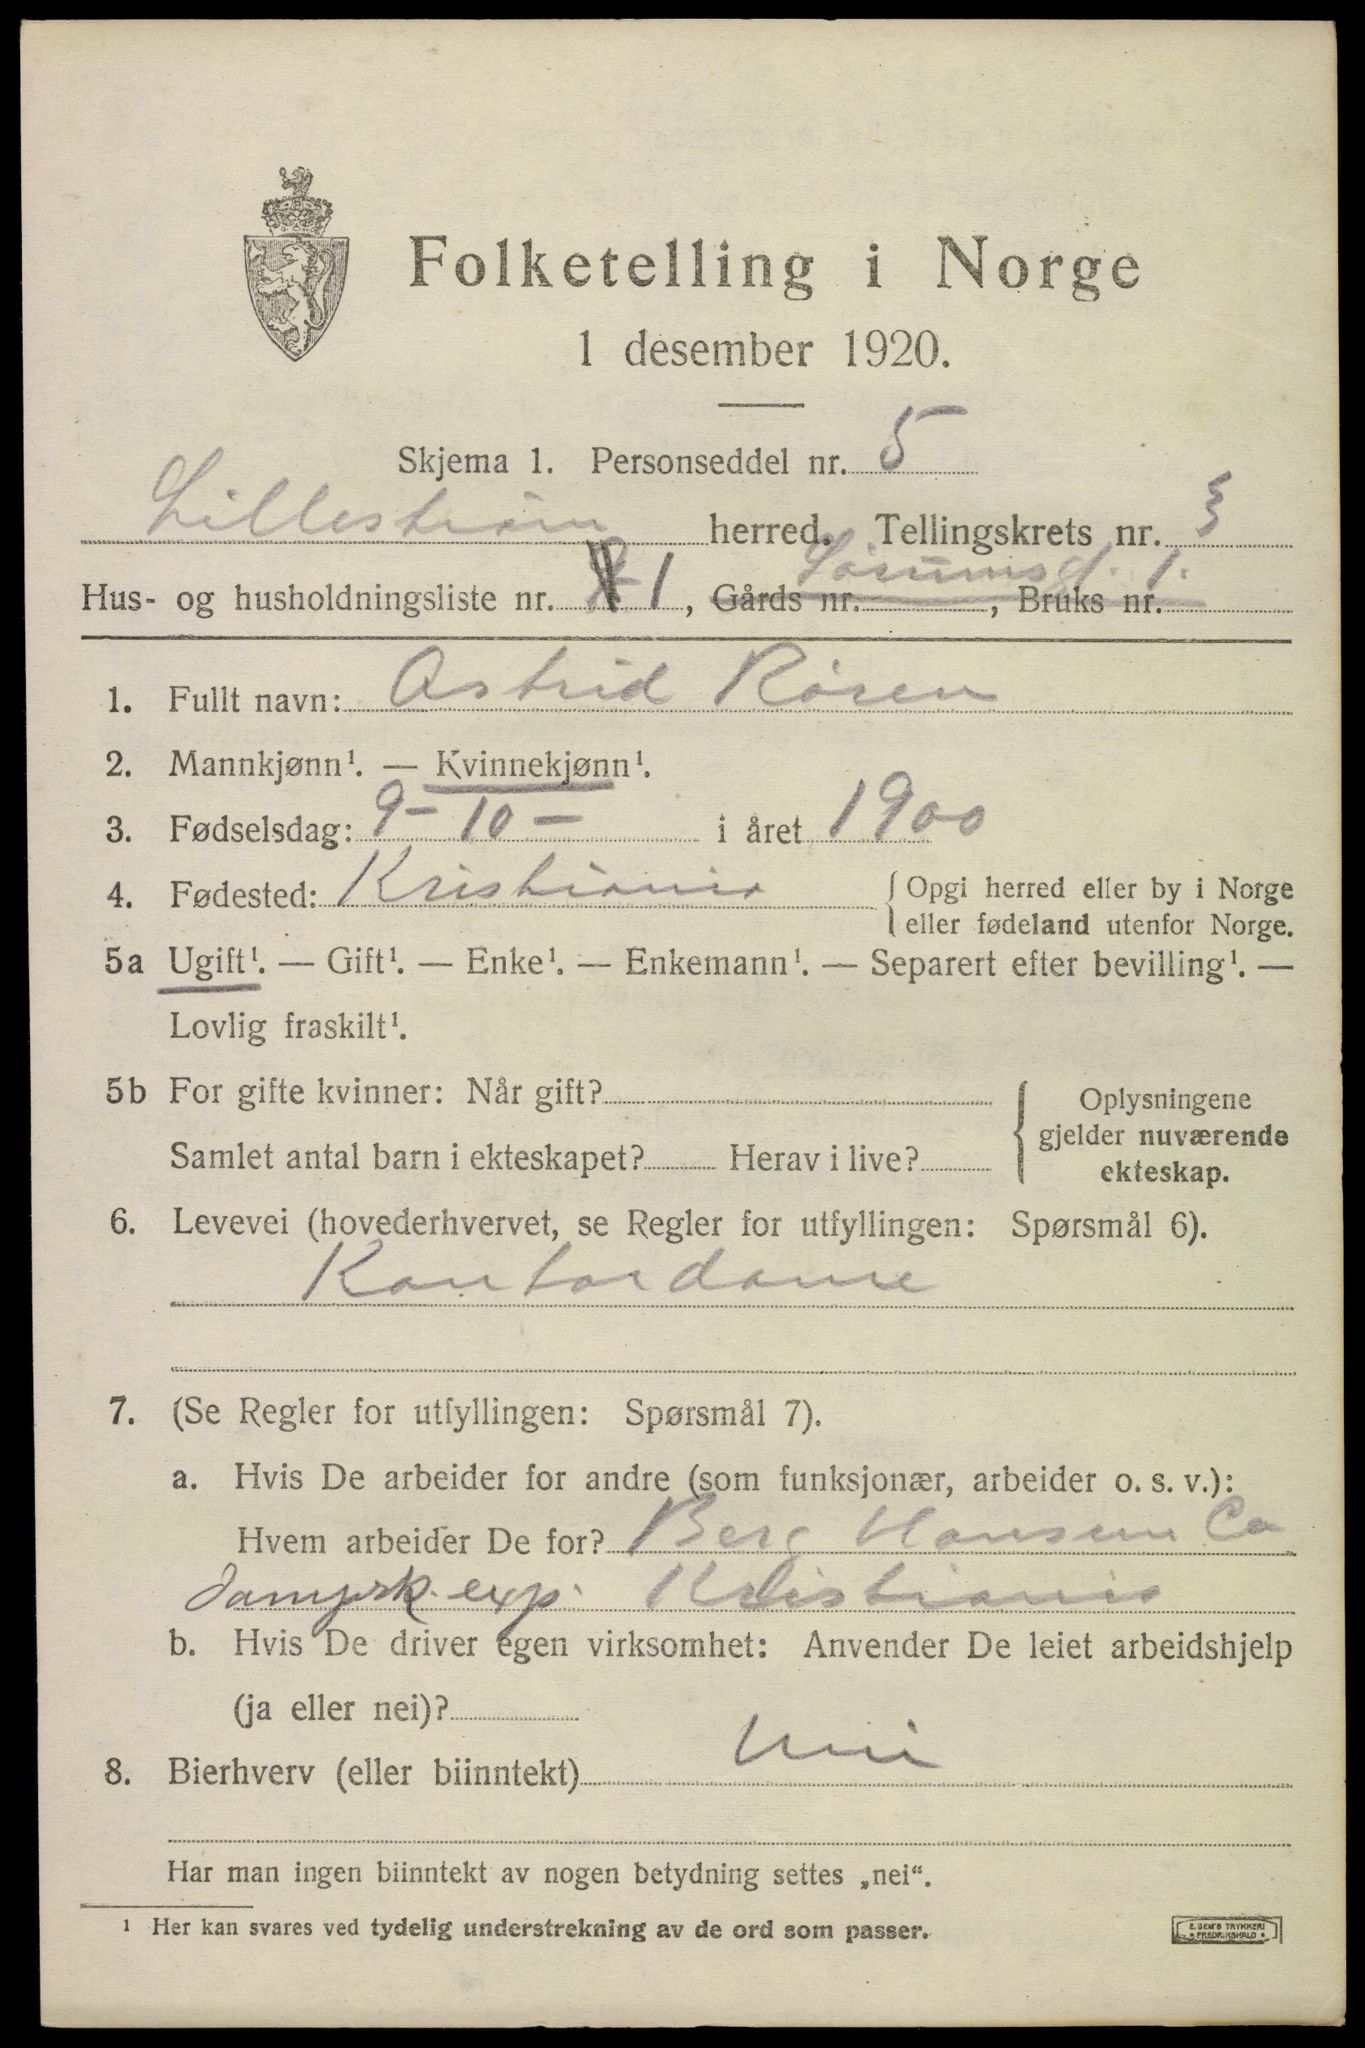 Folketelling i Norge
1 desember 1920.
Skjema 1. Personseddel nr. 5
Lillestrøm herred. Tellingskrets nr. 3
Hus- og husholdningsliste nr. 1, Gårds nr. , Bruks nr. Sørumsg. 1.
1. Fullt navn: Astrid Rosen
2. Mannkjønn¹. — Kvinnekjønn¹.
3. Fødselsdag: 9-10- i året 1900
4. Fødested: Kristiania { Opgi herred eller by i Norge
eller fødeland utenfor Norge.
5a Ugift¹. — Gift¹. — Enke¹. — Enkemann¹. — Separert efter bevilling¹. —
Lovlig fraskilt¹.
5b For gifte kvinner: Når gift?
Samlet antal barn i ekteskapet? Herav i live?
{ Oplysningene
gjelder nuværende
ekteskap.
6. Levevei (hovederhvervet, se Regler for utfyllingen: Spørsmål 6).
Kontordame
7. (Se Regler for utfyllingen: Spørsmål 7).
a. Hvis De arbeider for andre (som funksjonær, arbeider o. s. v.):
Hvem arbeider De for? Berg Hansen Co
dampsk. exp. Kristiania
b. Hvis De driver egen virksomhet: Anvender De leiet arbeidshjelp
(ja eller nei)?
8. Bierhverv (eller biinntekt) nei
Har man ingen biinntekt av nogen betydning settes „nei“.
¹ Her kan svares ved tydelig understrekning av de ord som passer.
E. SEM'S TRYKKERI
FREDRIKSHALD